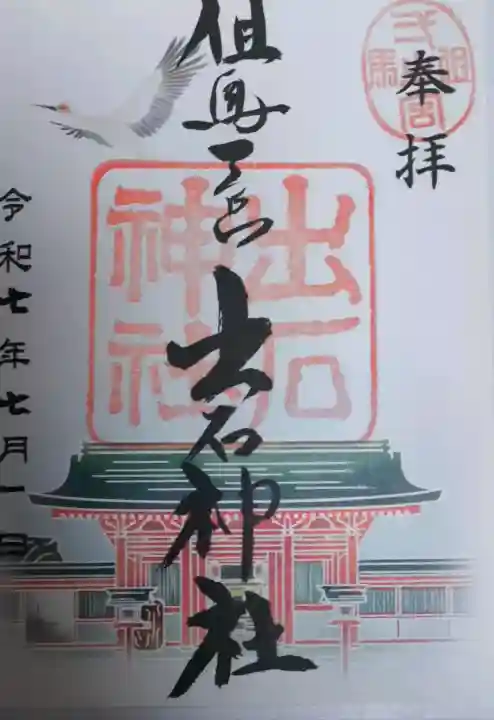 奉拝
但馬弌宮
但馬一宮 出石神社
出石
神社
令和七年七月一日